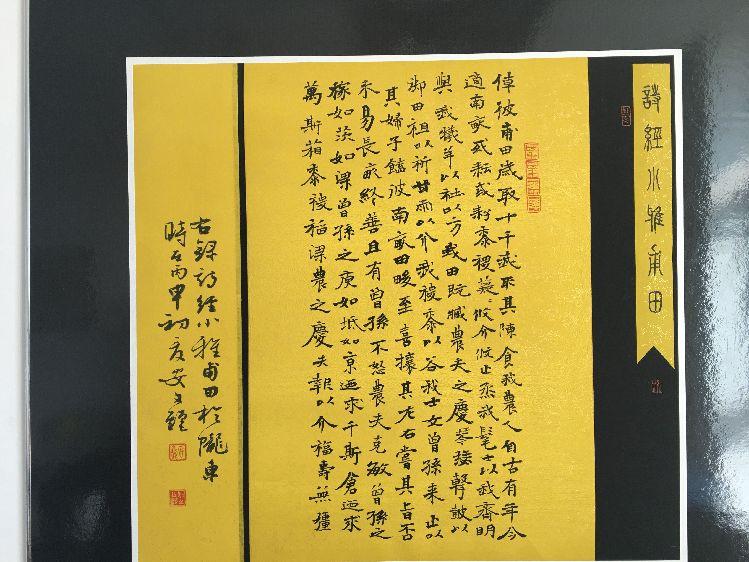 詩經小雅甫田
倬彼甫田歲取十千我取其陳食我農人自古有年今
適南畝或耘或耔黍稷薿〻攸介攸止烝我髦士以我齊明
與我犧羊以社以方我田既臧農夫之慶琴瑟擊鼓以
御田祖以祈甘雨以介我稷黍以谷我士女曾孫來止以
其婦子饁彼南畝田畯至喜攘其左右嘗其旨否
禾易長畝終善且有曾孫不怒農夫克敏曾孫之
稼如茨如梁曾孫之庾如坻如京迺求千斯倉迺求
萬斯箱黍稷稻粱農之慶夫報以介福壽無疆
右錄詩經小雅甫田於隴東
時在丙申初夏安文